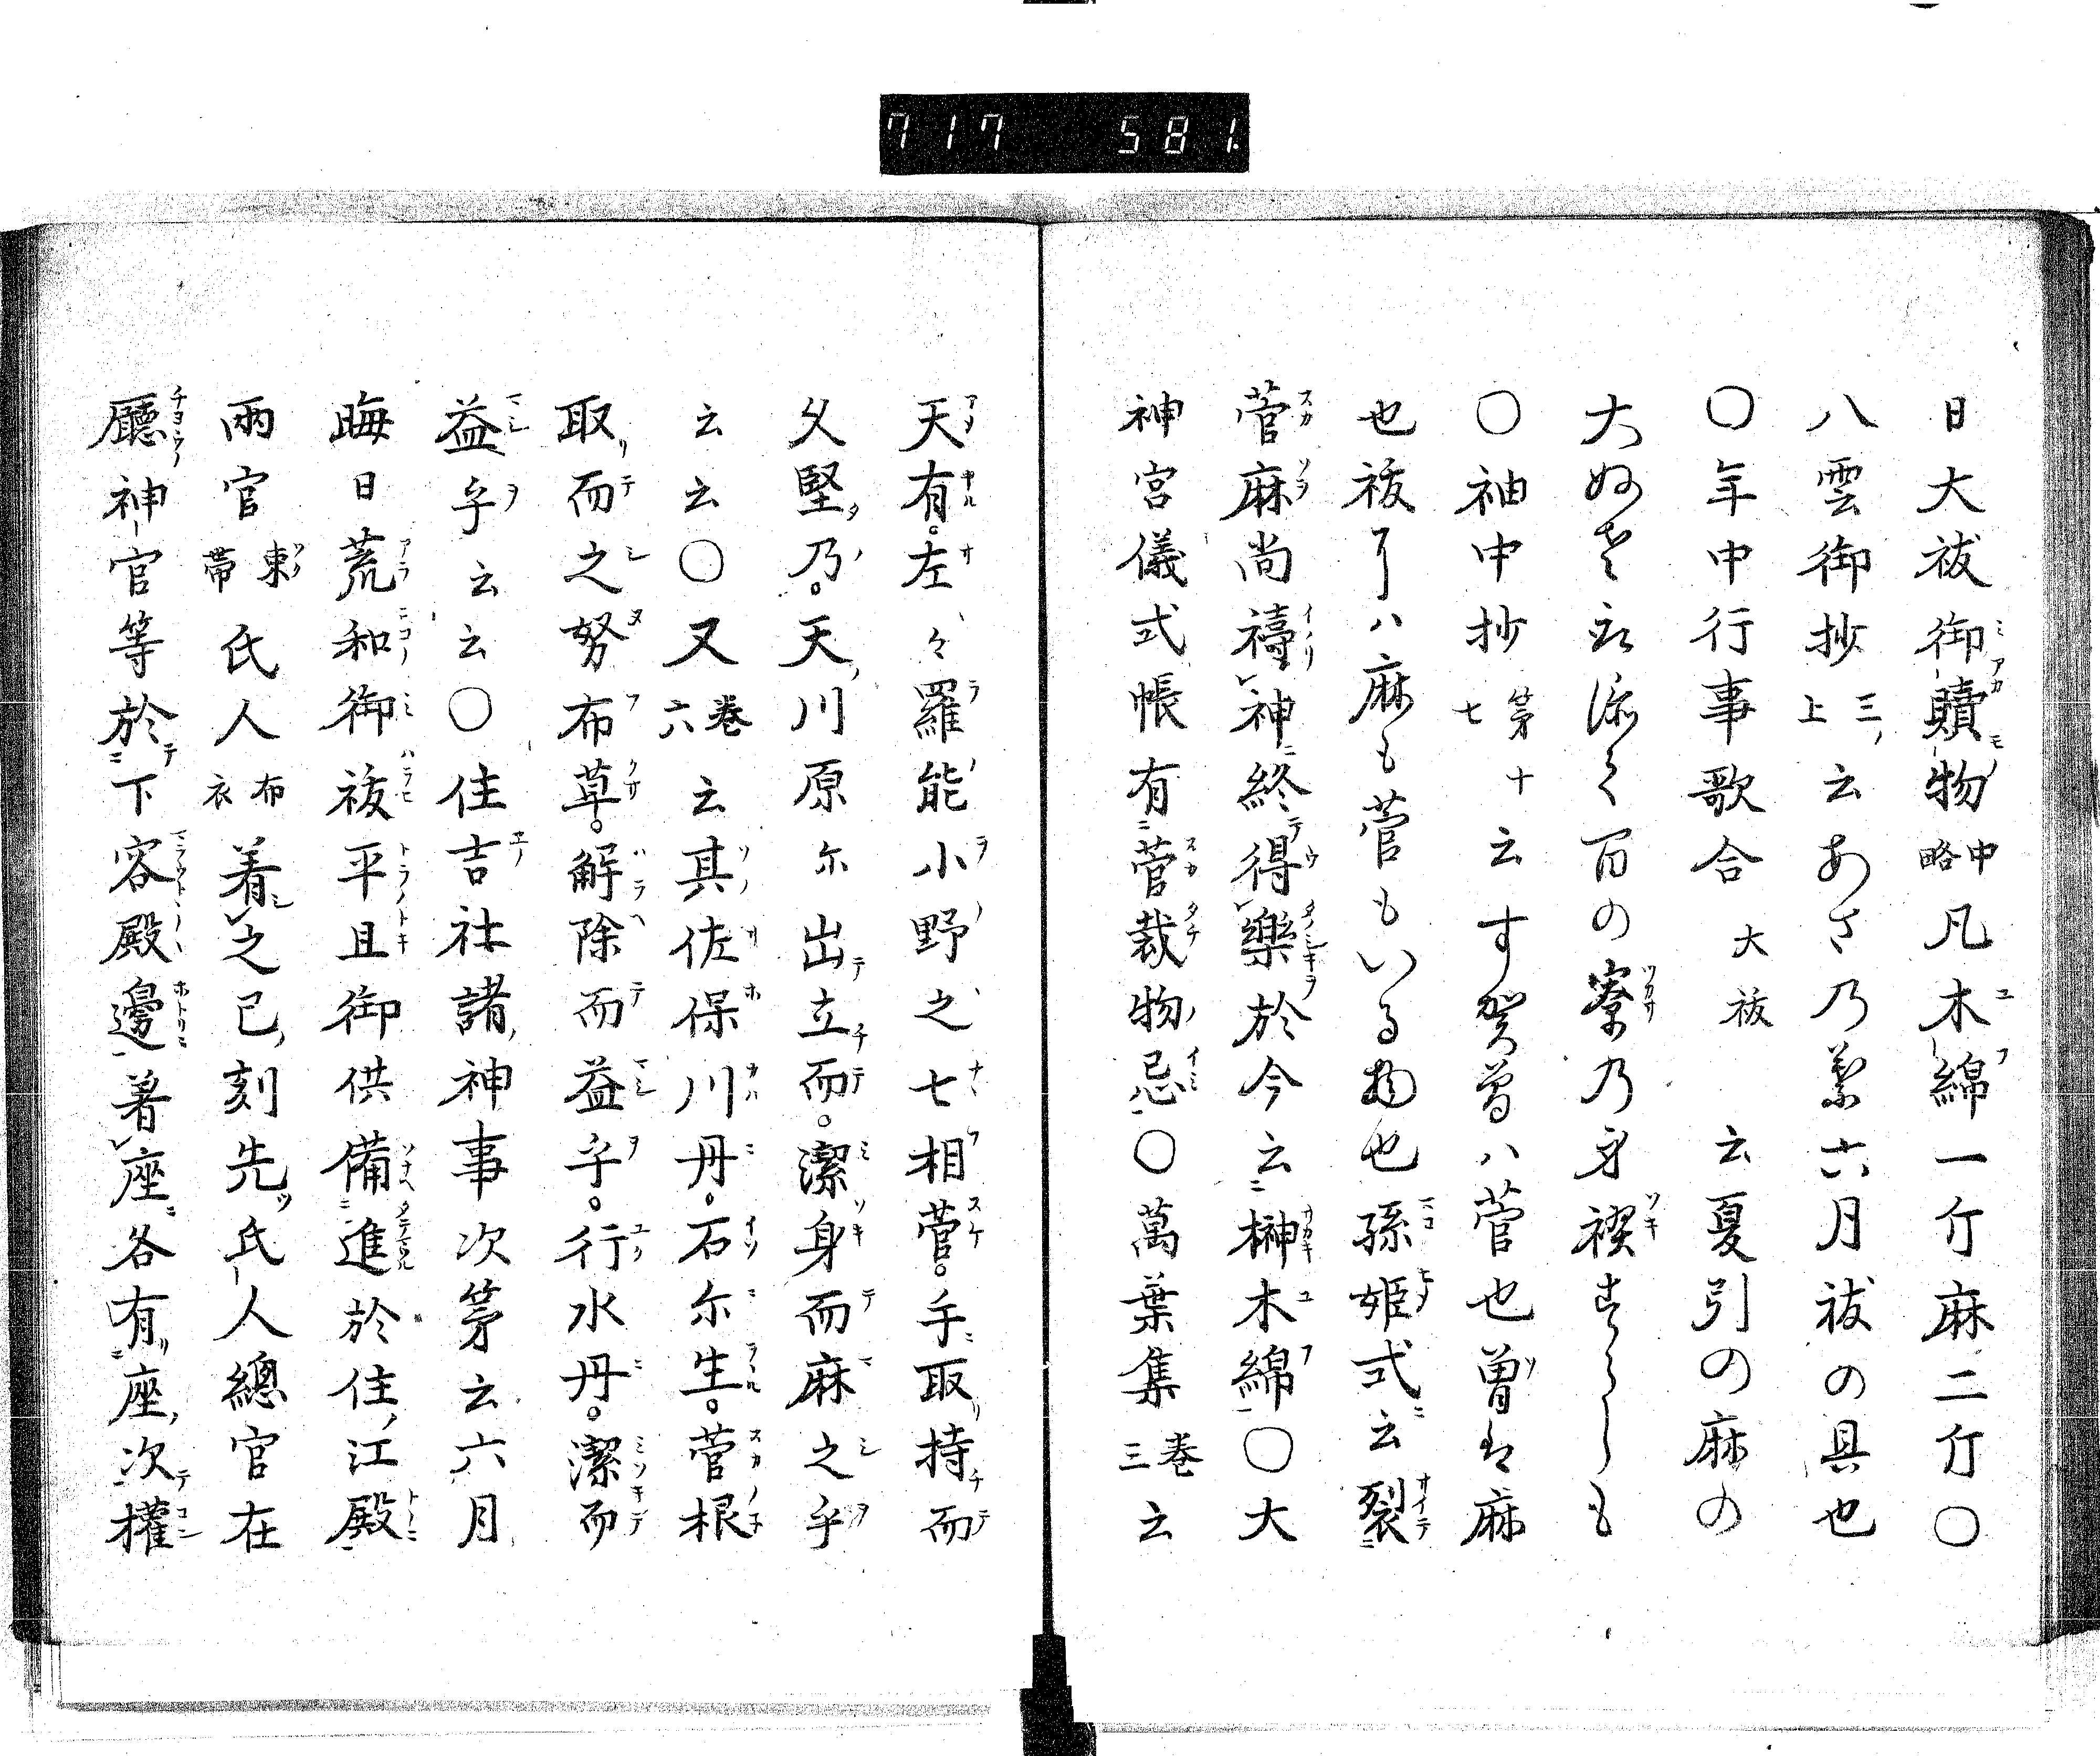 717 581
日大祓御贖物中略凡木綿一斤麻二斤〇
八雲御抄三ノ上云あさ乃葉六月祓の具也
〇年中行事歌合大祓云夏引の麻の
大ぬさ取添て百の寮乃身禊すらしも
〇袖中抄第十七云す賀曽ハ菅也曽は麻
也祓ニハ麻も菅もいる物也孫姫式云裂
菅麻尚禱神終得樂於今云榊木綿〇大
神宮儀式帳有菅裁物忌〇萬葉集巻三云
天有。左〻羅能小野之七相菅。手取持而
久堅乃。天川原尓出立而。潔身而麻之乎
云云〇又巻六云其佐保川丹。石尓生。菅根
取而之努布草。解除而益乎。行水丹。潔而
益乎云云〇住吉社諸神事次第云六月
晦日荒和御祓平旦御供備進於住江殿
兩官束帶氏人布衣着之已刻先氏人總官在
廳神官等於下客殿邊着座各有座次權